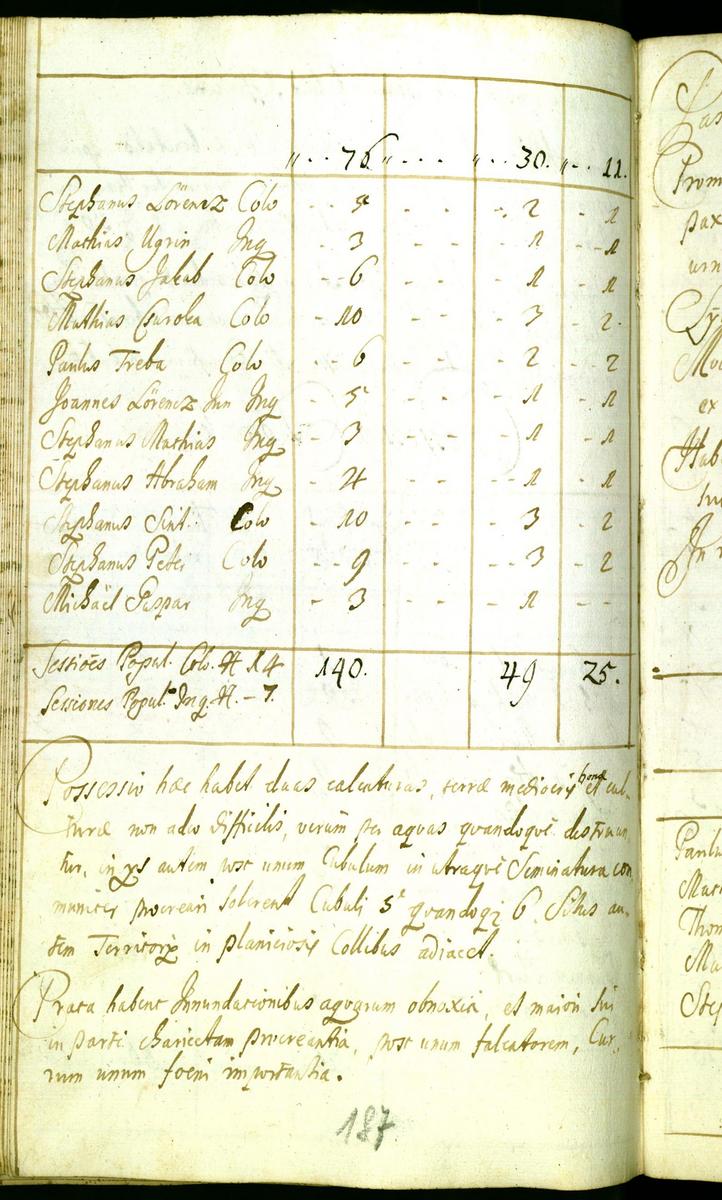 ,, - - 76 ,, - - - ,, - - 30. ,, - - 11.
Stephanus Lörencz Colo - - 5 - - - - 2 - 1
Mathias Ugrin Inq - 3 - - - 1 - - 1
Stephanus Jakab Colo - - 6 - - - 1 - 1
Mathias Csuroka Colo - 10 - - - 3 - 2.
Paulus Treba Colo - - 6 - - - 2 - 2
Joannes Lörencz Jun Inq - 5 - - - 1 - 1
Stephanus Mathias Inq - 3 - - - 1 - 1
Stephanus Abraham Inq - 4 - - - 1 - 1
Stephanus Sint. Colo - 10 - - - 3 - 2
Stephanus Peter Colo - - 9 - - - 3 - 2
Michäel Gaspar Inq - 3 - - - 1 - -
Sessiões Popul. Colo. # 14 140. 49 25.
Sessiones Popul. Inq. #. - 7.
Possessio hæc habet duas calcaturas, terræ mediocris bonæ et cul-
turæ non adeo difficilis, verum per aquas quandoque destruun
tur, in ijs autem post unum Cubulum in utraque Seminatura com
muniter procreari solerent Cubuli 5 quandoq 6. Situs au-
tem Territorij in planiciosis Collibus adjacet.
Prata habent Innundationibus aquarum obnoxia, et maiori sui
in parti charicetam procreantia, post unum falcatorem, Cur,
rum unum foeni importantia.
187